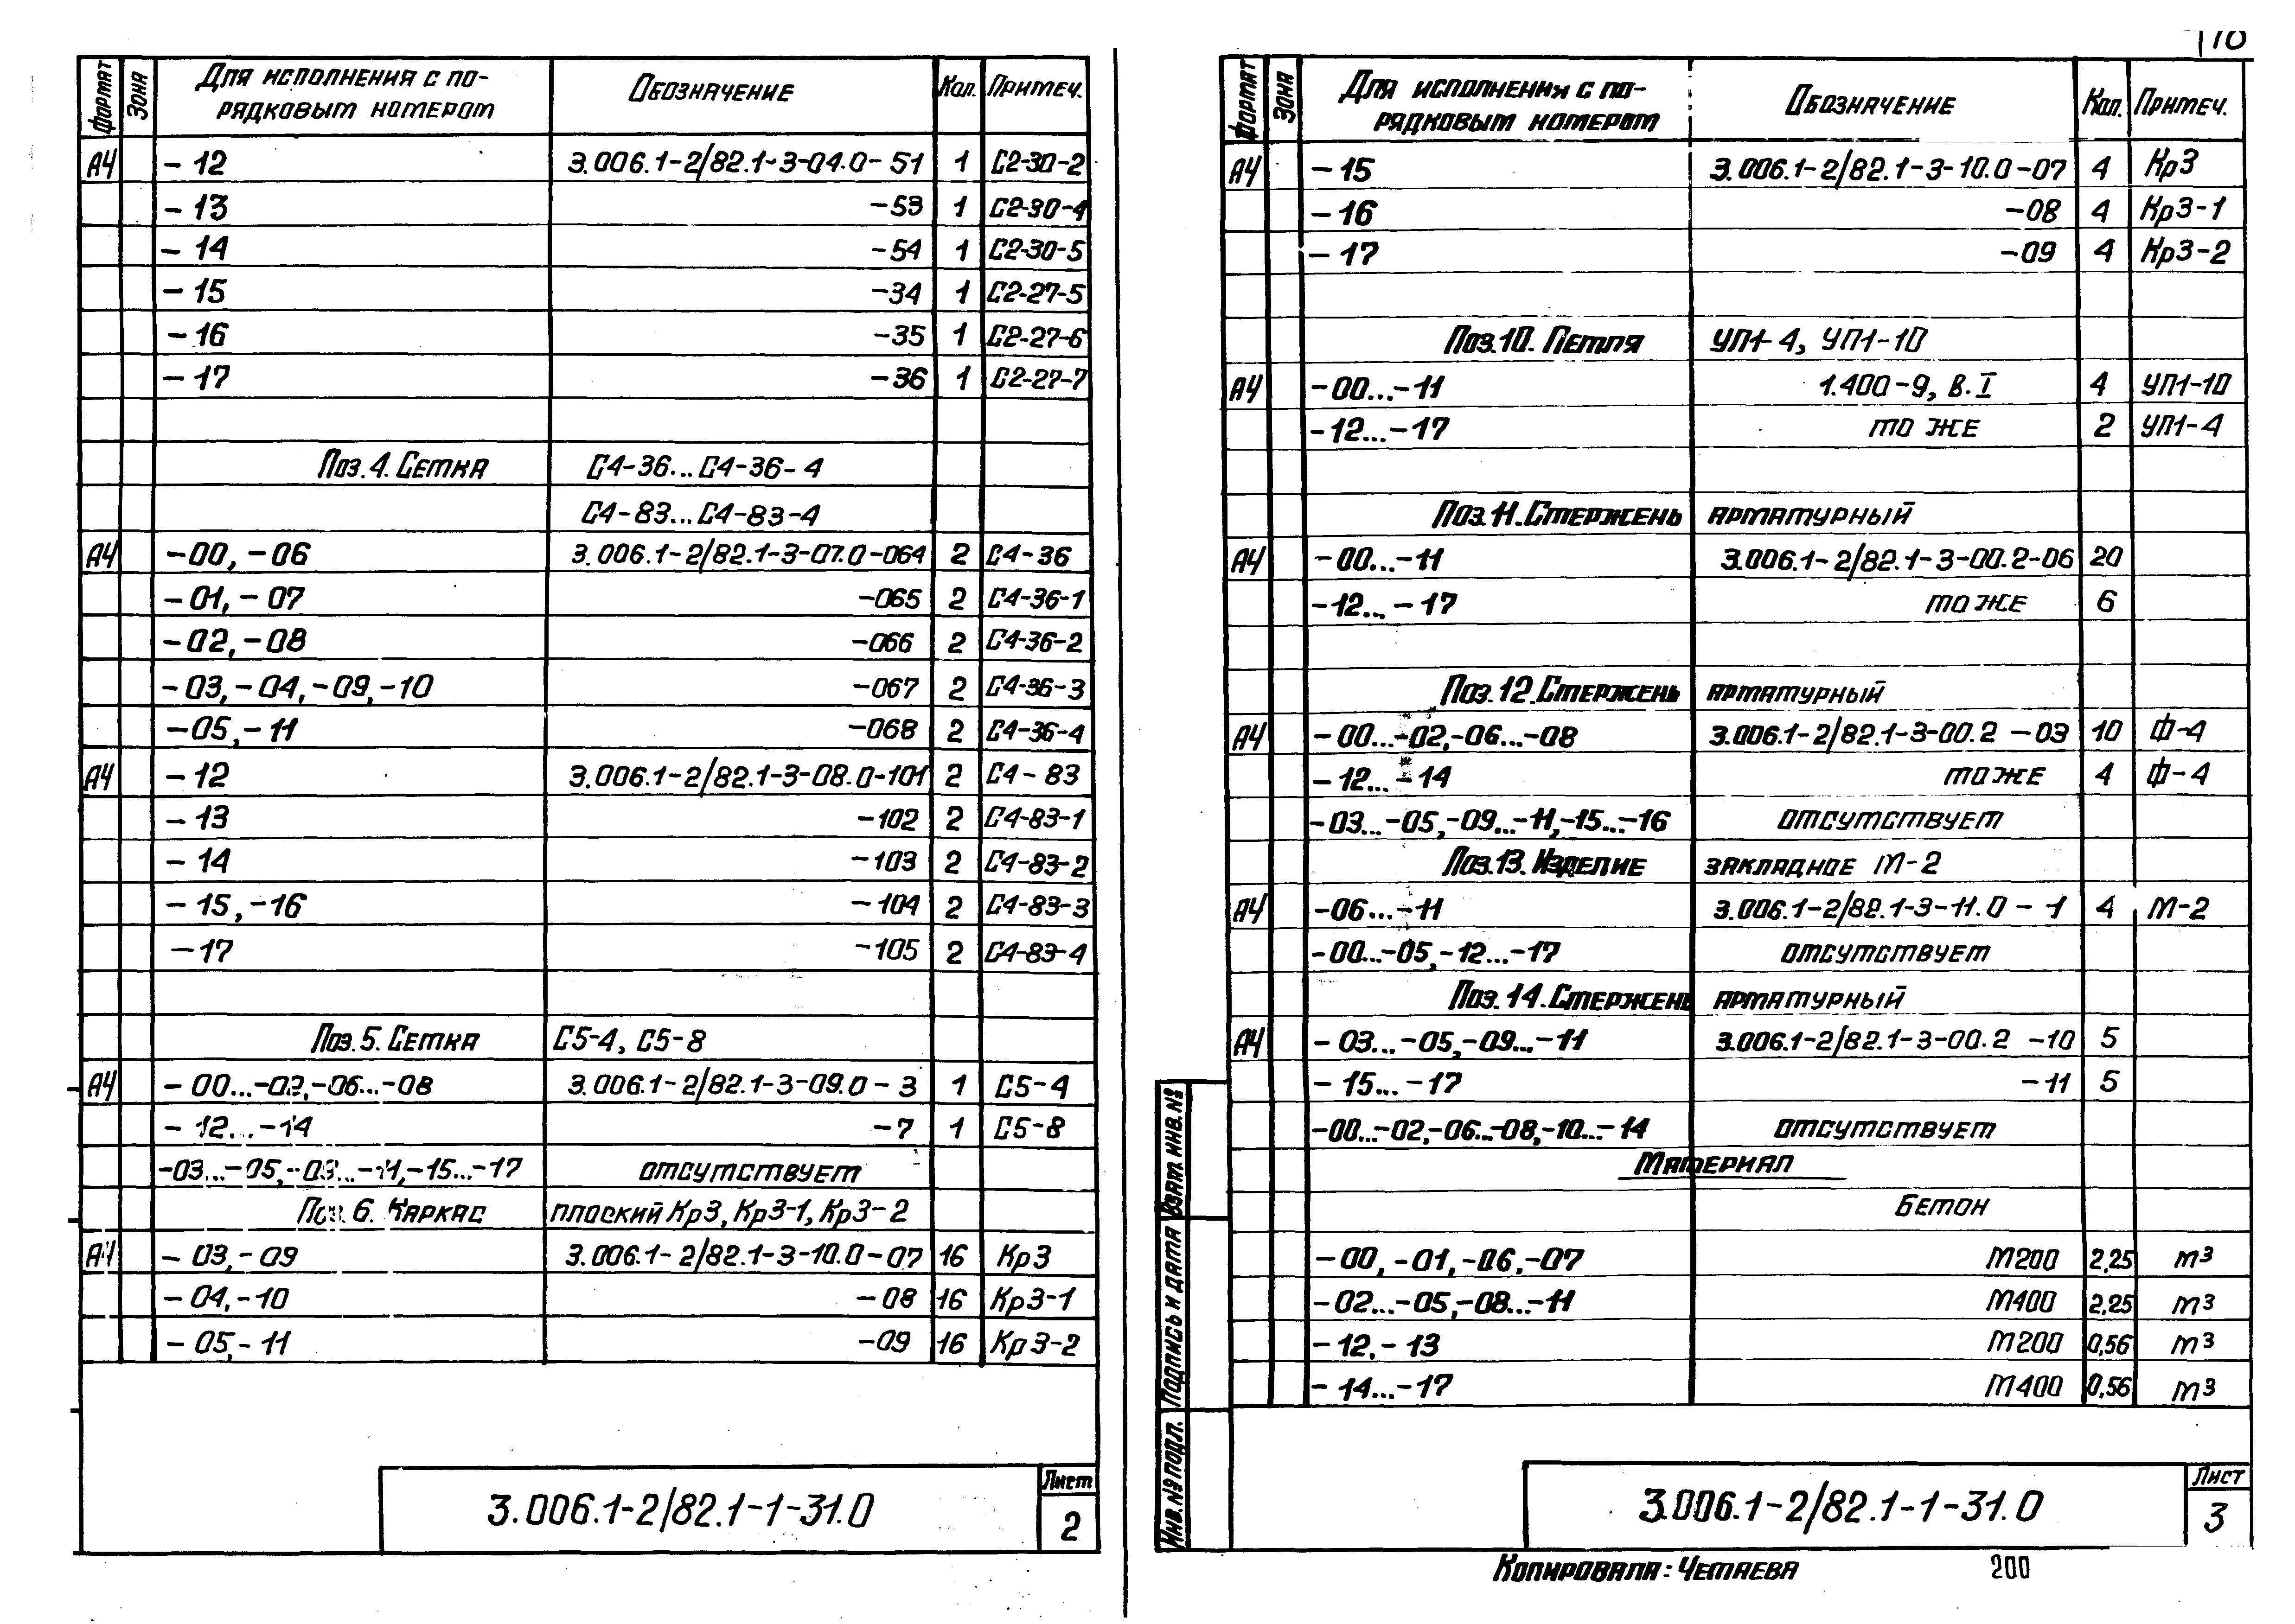 Формат Зона Для исполнения с по- Обозначение Кол. Примеч.
рядковым номером
А4 -12 3.006.1-2/82.1-3-04.0-51 1 С2-30-2
-13 -53 1 С2-30-4
-14 -54 1 С2-30-5
-15 -34 1 С2-27-5
-16 -35 1 С2-27-6
-17 -36 1 С2-27-7
Поз.4. Сетка С4-36...С4-36-4
С4-83...С4-83-4
А4 -00, -06 3.006.1-2/82.1-3-07.0-064 2 С4-36
-01, -07 -065 2 С4-36-1
-02, -08 -066 2 С4-36-2
-03, -04, -09, -10 -067 2 С4-36-3
-05, -11 -068 2 С4-36-4
А4 -12 3.006.1-2/82.1-3-08.0-101 2 С4-83
-13 -102 2 С4-83-1
-14 -103 2 С4-83-2
-15, -16 -104 2 С4-83-3
-17 -105 2 С4-83-4
Поз.5. Сетка С5-4, С5-8
А4 -00...-02, -06...-08 3.006.1-2/82.1-3-09.0-3 1 С5-4
-12...-14 -7 1 С5-8
-03...-05, -09...-11, -15...-17 отсутствует
Поз.6. Каркас плоский Кр3, Кр3-1, Кр3-2
А4 -03, -09 3.006.1-2/82.1-3-10.0-07 16 Кр3
-04, -10 -08 16 Кр3-1
-05, -11 -09 16 Кр3-2
3.006.1-2/82.1-1-31.0
Лист
2
Формат Зона Для исполнения с по- Обозначение Кол. Примеч.
рядковым номером
А4 -15 3.006.1-2/82.1-3-10.0-07 4 Кр3
-16 -08 4 Кр3-1
-17 -09 4 Кр3-2
Поз.10. Петля УП1-4, УП1-10
А4 -00...-11 1.400-9, В.I 4 УП1-10
-12...-17 то же 2 УП1-4
Поз.11. Стержень арматурный
А4 -00...-11 3.006.1-2/82.1-3-00.2-06 20
-12...-17 то же 6
Поз.12. Стержень арматурный
А4 -00...-02, -06...-08 3.006.1-2/82.1-3-00.2-03 10 Ф-4
-12...-14 то же 4 Ф-4
-03...-05, -09...-11, -15...-16 отсутствует
Поз.13. Изделие закладное М-2
А4 -06...-11 3.006.1-2/82.1-3-11.0-1 4 М-2
-00...-05, -12...-17 отсутствует
Поз.14. Стержень арматурный
А4 -03...-05, -09...-11 3.006.1-2/82.1-3-00.2-10 5
-15...-17 -11 5
-00...-02, -06...-08, -10...-14 отсутствует
Материал
Бетон
-00, -01, -06, -07 М200 2,25 м³
-02...-05, -08...-11 М400 2,25 м³
-12, -13 М200 0,56 м³
-14...-17 М400 0,56 м³
Взам. инв. №
Подпись и дата
Инв. № подл.
3.006.1-2/82.1-1-31.0
Лист
3
Копировала: Четаева 200